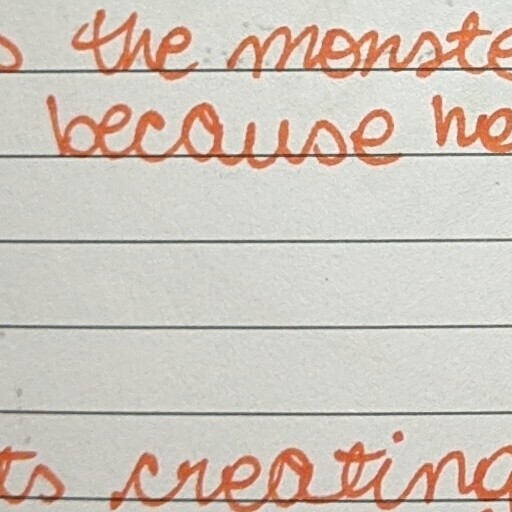 the monste
because he
ts creating